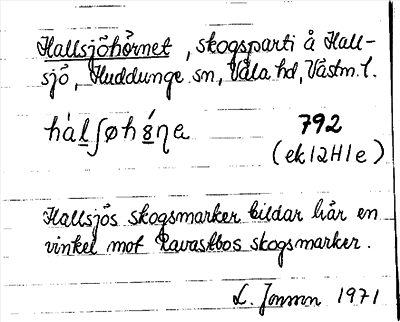 Hallsjöhörnet, skogsparti å Hall-
sjö, Huddunge sn, Våla hd, Västm. l.
792
(ek 12H1e)
Hallsjös skogsmarker bildar här en
vinkel mot Ravastbos skogsmarker.
L. Jonson 1971